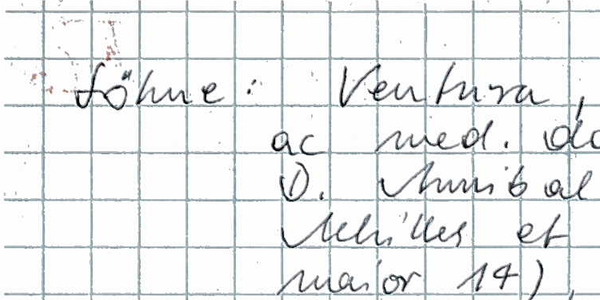 Söhne: Ventura,
ac med. do
D. Annibal
Achilles et
maior 14),